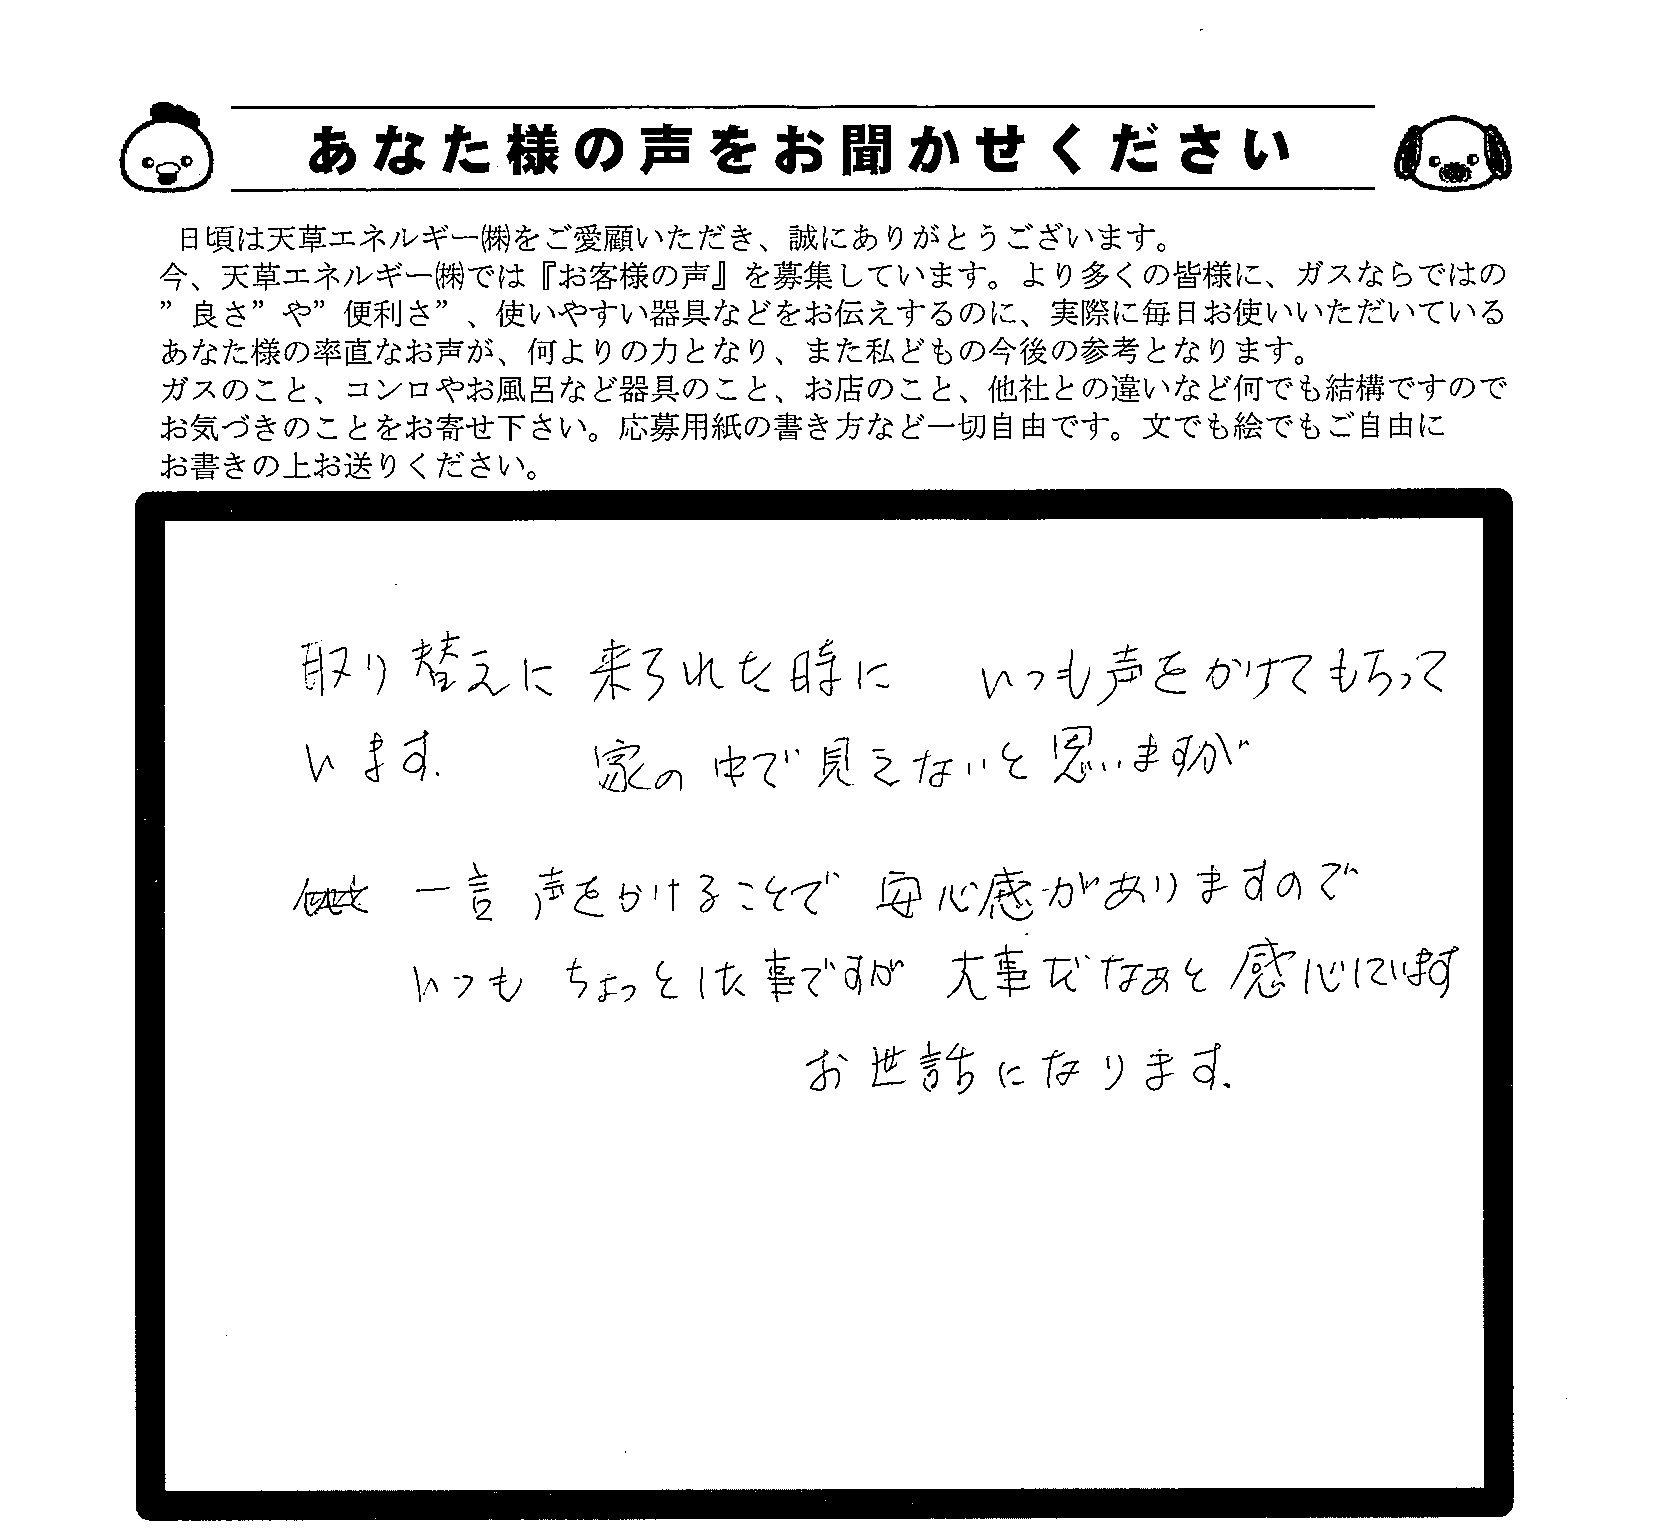 あなた様の声をお聞かせください
日頃は天草エネルギー㈱をご愛顧いただき、誠にありがとうございます。
今、天草エネルギー㈱では『お客様の声』を募集しています。より多くの皆様に、ガスならではの
”良さ”や”便利さ”、使いやすい器具などをお伝えするのに、実際に毎日お使いいただいている
あなた様の率直なお声が、何よりの力となり、また私どもの今後の参考となります。
ガスのこと、コンロやお風呂など器具のこと、お店のこと、他社との違いなど何でも結構ですので
お気づきのことをお寄せ下さい。応募用紙の書き方など一切自由です。文でも絵でもご自由に
お書きの上お送りください。
取り替えに 来られた時に いつも声をかけてもらって
います. 家の中で見えないと思いますが
一言 声をかけることで 安心感がありますので
いつも ちょっとした事ですが 大事だなぁと感心しています
お世話になります.